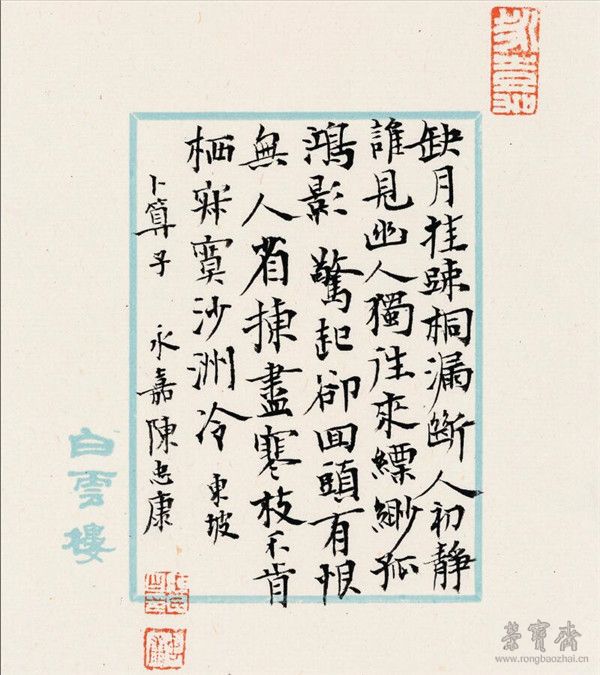 缺月挂疎桐漏断人初静
誰見幽人獨往来縹緲孤
鴻影驚起卻回頭有恨
無人省揀盡寒枝不肯
栖寂寞沙洲冷 東坡
卜算子 永嘉陳忠康
白雲樓
榮寶齋
www.rongbaozhai.cn